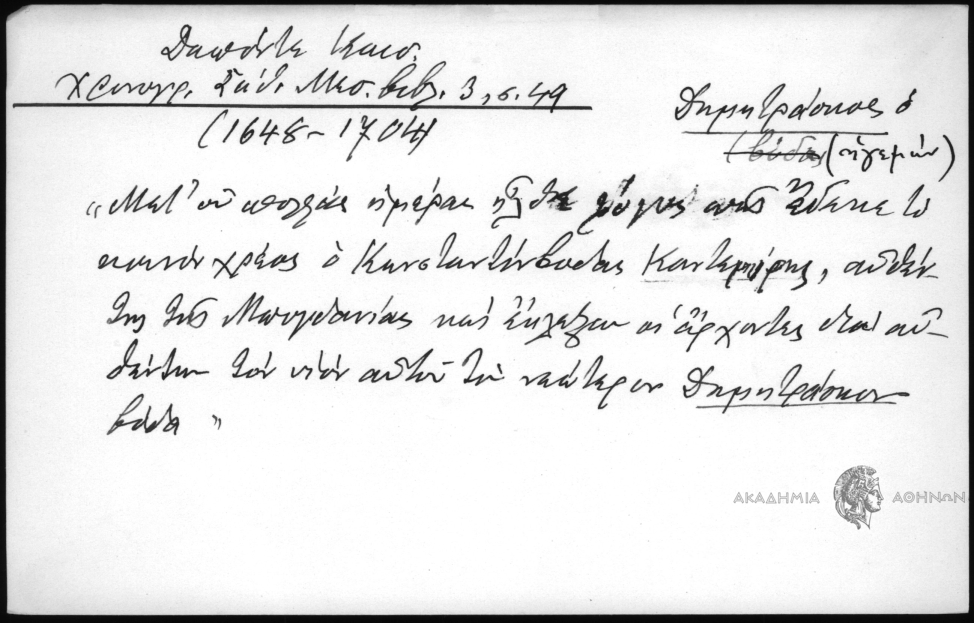 Δαπόντε Καισ.
Χρονογρ. Σάθ. Μεσ. βιβλ. 3, σ. 49
(1648-1704)
Δημητράσκος ὁ
(βόδας) (ἡγεμών)
"Μετ' οὐ πολλὰς ἡμέρας ἦλθε λόγος πῶς ἔδωκε τὸ
κοινὸν χρέος ὁ Κωνσταντῖνβόδας Καντεμίρης, αὐθέν-
της τῆς Μπογδανίας καὶ ἔκλεξαν οἱ ἄρχοντες διὰ αὐ-
θέντην τὸν υἱὸν αὐτοῦ τὸν νεώτερον Δημητράσκον
βόδα"
ΑΚΑΔΗΜΙΑ ΑΘΗΝΩΝ